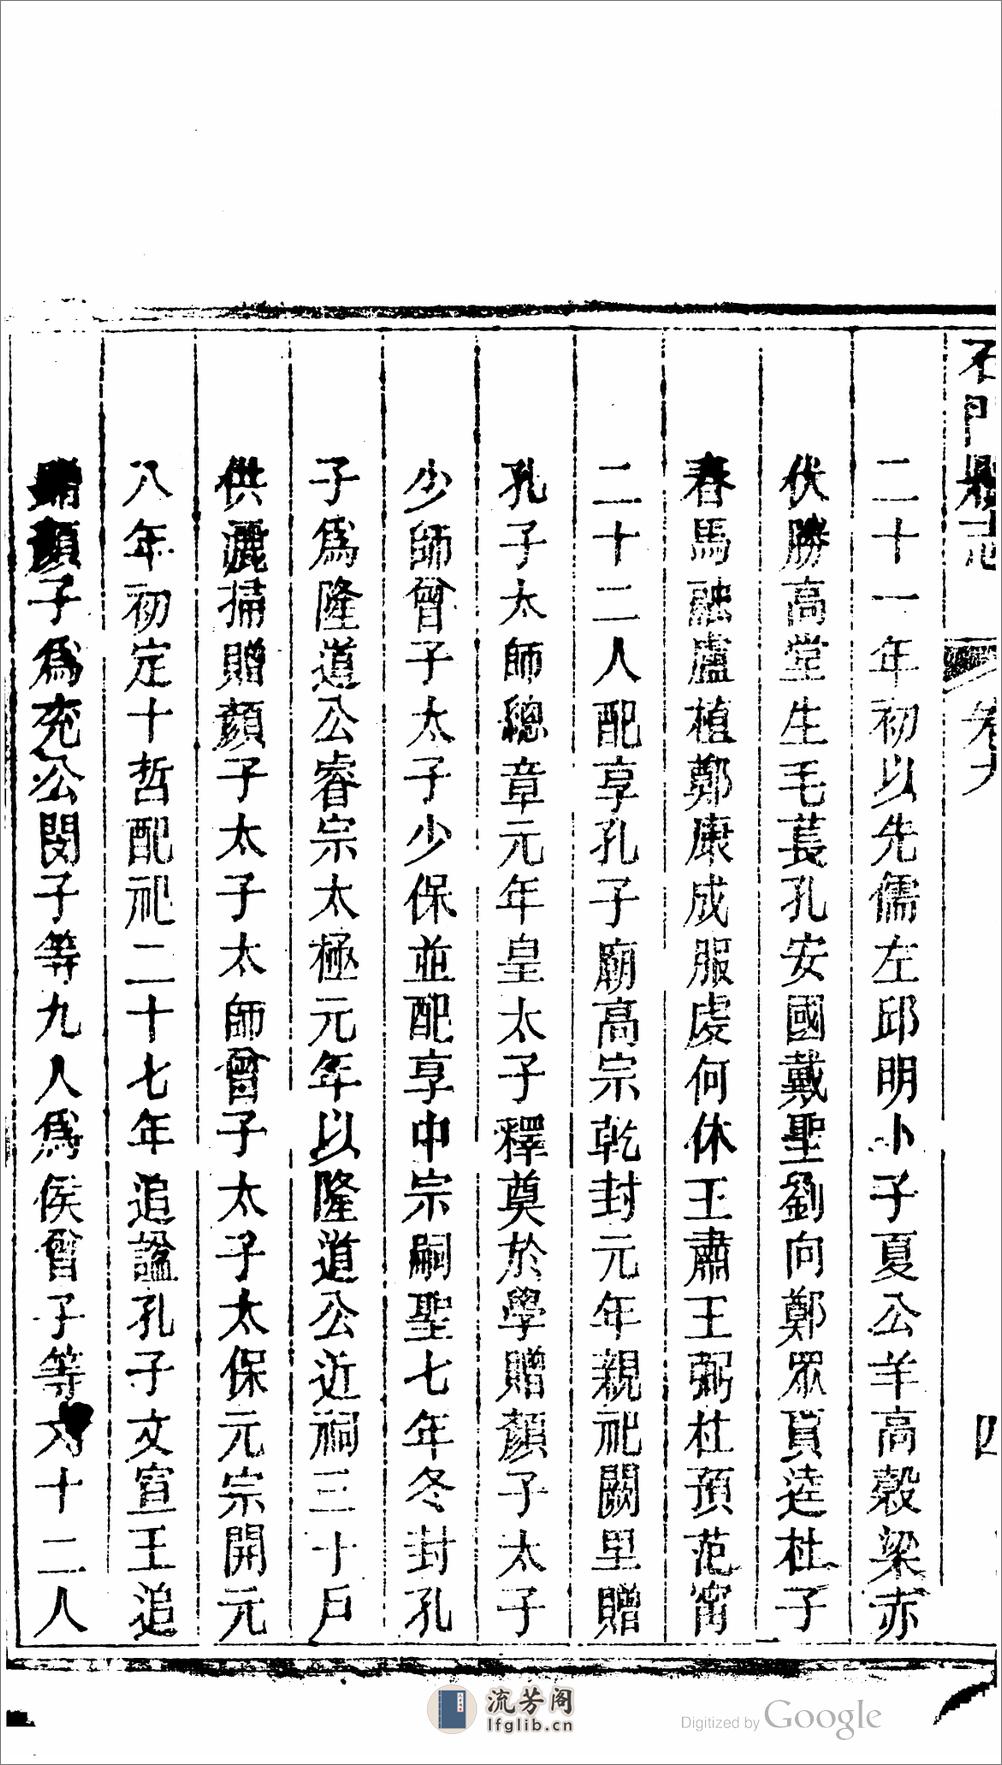 石門縣志 卷九 四
二十一年初以先儒左邱明卜子夏公羊高穀梁赤
伏勝高堂生毛萇孔安國戴聖劉向鄭眾賈逵杜子
春馬融盧植鄭康成服虔何休王肅王弼杜預范甯
二十二人配享孔子廟高宗乾封元年親祀闕里贈
孔子太師總章元年皇太子釋奠於學贈顏子太子
少師曾子太子少保並配享中宗嗣聖七年冬封孔
子爲隆道公睿宗太極元年以隆道公近祠三十戶
供灑掃贈顏子太子太師曾子太子太保元宗開元
八年初定十哲配祀二十七年追諡孔子文宣王追
顏子爲兖公閔子等九人爲侯曾子等六十二人
流芳阁
lfglib.cn
Digitized by Google